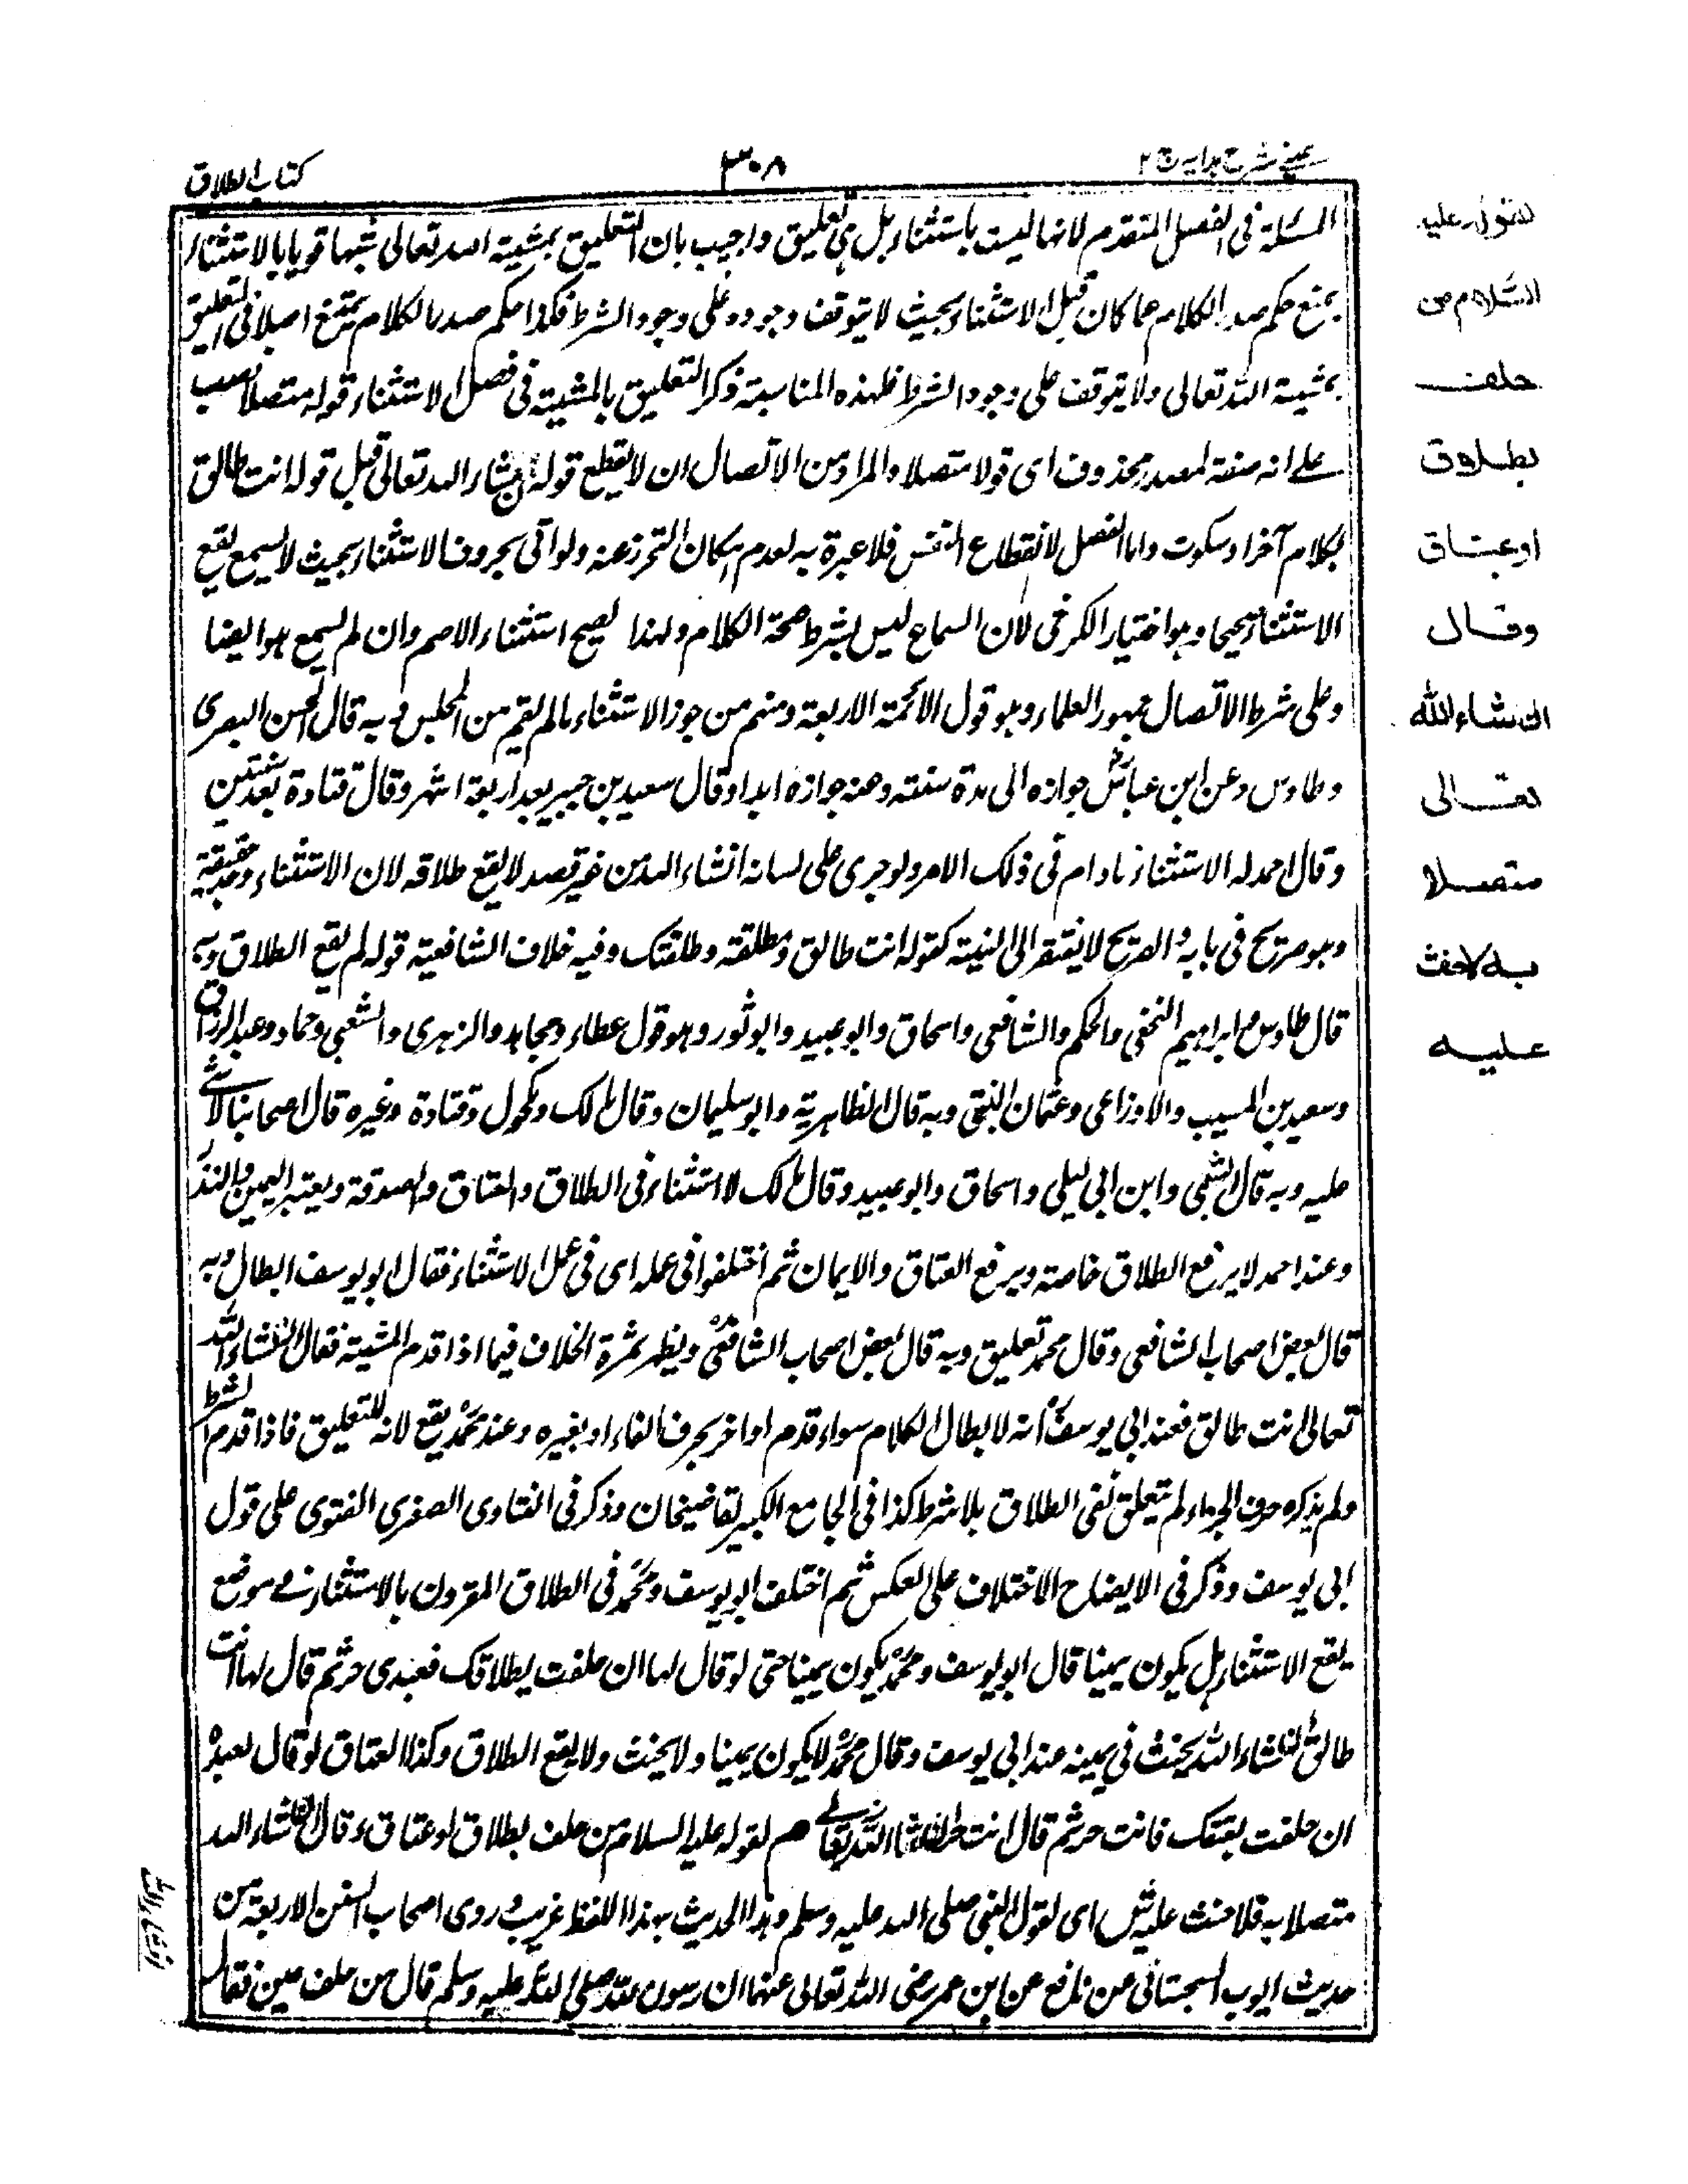 عینی شرح ہدایہ ج ٢
٣٠٨
كتاب الطلاق
المسئلة فى الفصل المتقدم لانها ليست باستثناء بل هى تعليق واجيب بان التعليق بمشية الله تعالى شبها قويا بالاستثناء
يمنع حكم صدر الكلام عما كان قبل الاستثناء بحيث لا يتوقف وجوده على وجود الشرط فكذا حكم صدر الكلام يمتنع اصلا فى التعليق
بمشية الله تعالى ولا يتوقف على وجود الشرط فلهذه المناسبة ذكر التعليق بالمشية فى فصل الاستثناء قوله متصلا نصب
على انه صفة لمصدر محذوف اى قولا متصلا والمراد من الاتصال ان لا يقطع قوله ان شاء الله تعالى قبل قوله انت طالق
بكلام آخر او سكوت واما الفصل لانقطاع النفس فلا عبرة به لعدم امكان التحرز عنه ولو اتى بحروف الاستثناء بحيث لا يسمع يقع
الاستثناء صحيحا وهو اختيار الكرخى لان السماع ليس بشرط صحة الكلام ولهذا يصح استثناء الاصم وان لم يسمع هو ايضا
وعلى شرط الاتصال جمهور العلماء وهو قول الائمة الاربعة ومنهم من جوز الاستثناء مالم يقم من المجلس وبه قال الحسن البصرى
وطاوس وعن ابن عباس جوازه الى مدة سنة وعنه جوازه ابدا وقال سعيد بن جبير بعد اربعة اشهر وقال قتادة بعد سنتين
وقال احمد له الاستثناء مادام فى ذلك الامر ولو جرى على لسانه انشاء الله من غير قصد لا يقع طلاقه لان الاستثناء وجد حقيقة
وهو صريح فى بابه والصريح لا يفتقر الى النية كقوله انت طالق ومطلقة وطلقتك وفيه خلاف الشافعية قوله لم يقع الطلاق وبه
قال طاوس وابراهيم النخعى والحكم والشافعى واسحاق وابو عبيد وابو ثور وهو قول عطاء ومجاهد والزهرى والشعبى وحماد وعبد الرزاق
وسعيد بن المسيب والاوزاعى وعثمان البتى وبه قال الظاهرية وابو سليمان وقال مالك ومكحول وقتادة وغيره قال اصحابنا لا شئ
عليه وبه قال الشعبى وابن ابى ليلى واسحاق وابو عبيد وقال مالك لا استثناء فى الطلاق والعتاق والصدقة ويعتبر اليمين والنذر
وعند احمد لا يرفع الطلاق خاصة ويرفع العتاق والايمان ثم اختلفوا فى عمله اى فى عمل الاستثناء فقال ابو يوسف ابطال وبه
قال بعض اصحاب الشافعى وقال محمد تعليق وبه قال بعض اصحاب الشافعى ويظهر ثمرة الخلاف فيما اذا قدم المشية فقال ان شاء الله
تعالى انت طالق فعند ابى يوسف انه لابطال الكلام سواء قدم او اخر بحرف الفاء او بغيره وعند محمد يقع لانه للتعليق فاذا قدم الشرط
ولم يذكره حرف الجزاء لم يتعلق نفى الطلاق بلا شرط كذا فى الجامع الكبير لقاضيخان وذكر فى الفتاوى الصغرى الفتوى على قول
ابى يوسف وذكر فى الايضاح الاختلاف على العكس ثم اختلف ابو يوسف ومحمد فى الطلاق المقرون بالاستثناء فى موضع
يقع الاستثناء هل يكون يمينا قال ابو يوسف ومحمد يكون يمينا حتى لو قال لها ان حلفت بطلاقك فعبدى حر ثم قال لها انت
طالق انشاء الله يحنث فى يمينه عند ابى يوسف وقال محمد لا يكون يمينا ولا يحنث ولا يقع الطلاق وكذا العتاق لو قال لعبده
ان حلفت بعتقك فانت حر ثم قال انت حر انشاء الله تعالى هم لقوله عليه السلام من حلف بطلاق او عتاق وقال ان شاء الله
متصلا به فلا حنث عليه ش اى لقول النبى صلى الله عليه وسلم وهذا الحديث بهذا اللفظ غريب وروى اصحاب السنن الاربعة من
حديث ايوب السجستانى عن نافع عن ابن عمر رضى الله تعالى عنهما ان رسول الله صلى الله عليه وسلم قال من حلف على يمين فقال
لقوله عليه
السلام من
حلف
بطلاق
او عتاق
وقال
ان شاء الله
تعالى
متصلا
به لا حنث
عليه